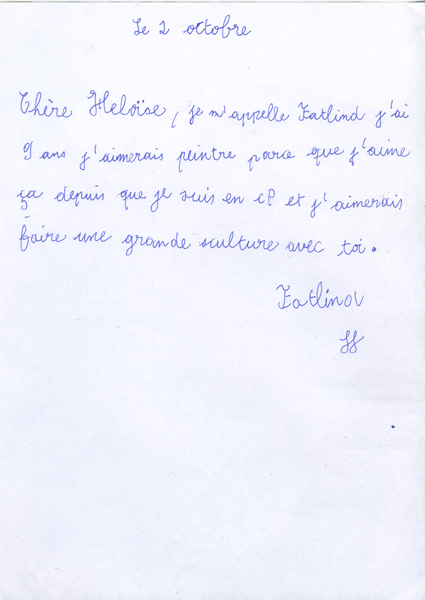 Le 2 octobre
Chère Heloïse, je m'appelle Fatlind j'ai
9 ans j'aimerais peintre parce que j'aime
ça depuis que je suis en CP et j'aimerais
faire une grande sculture avec toi.
Fatlind